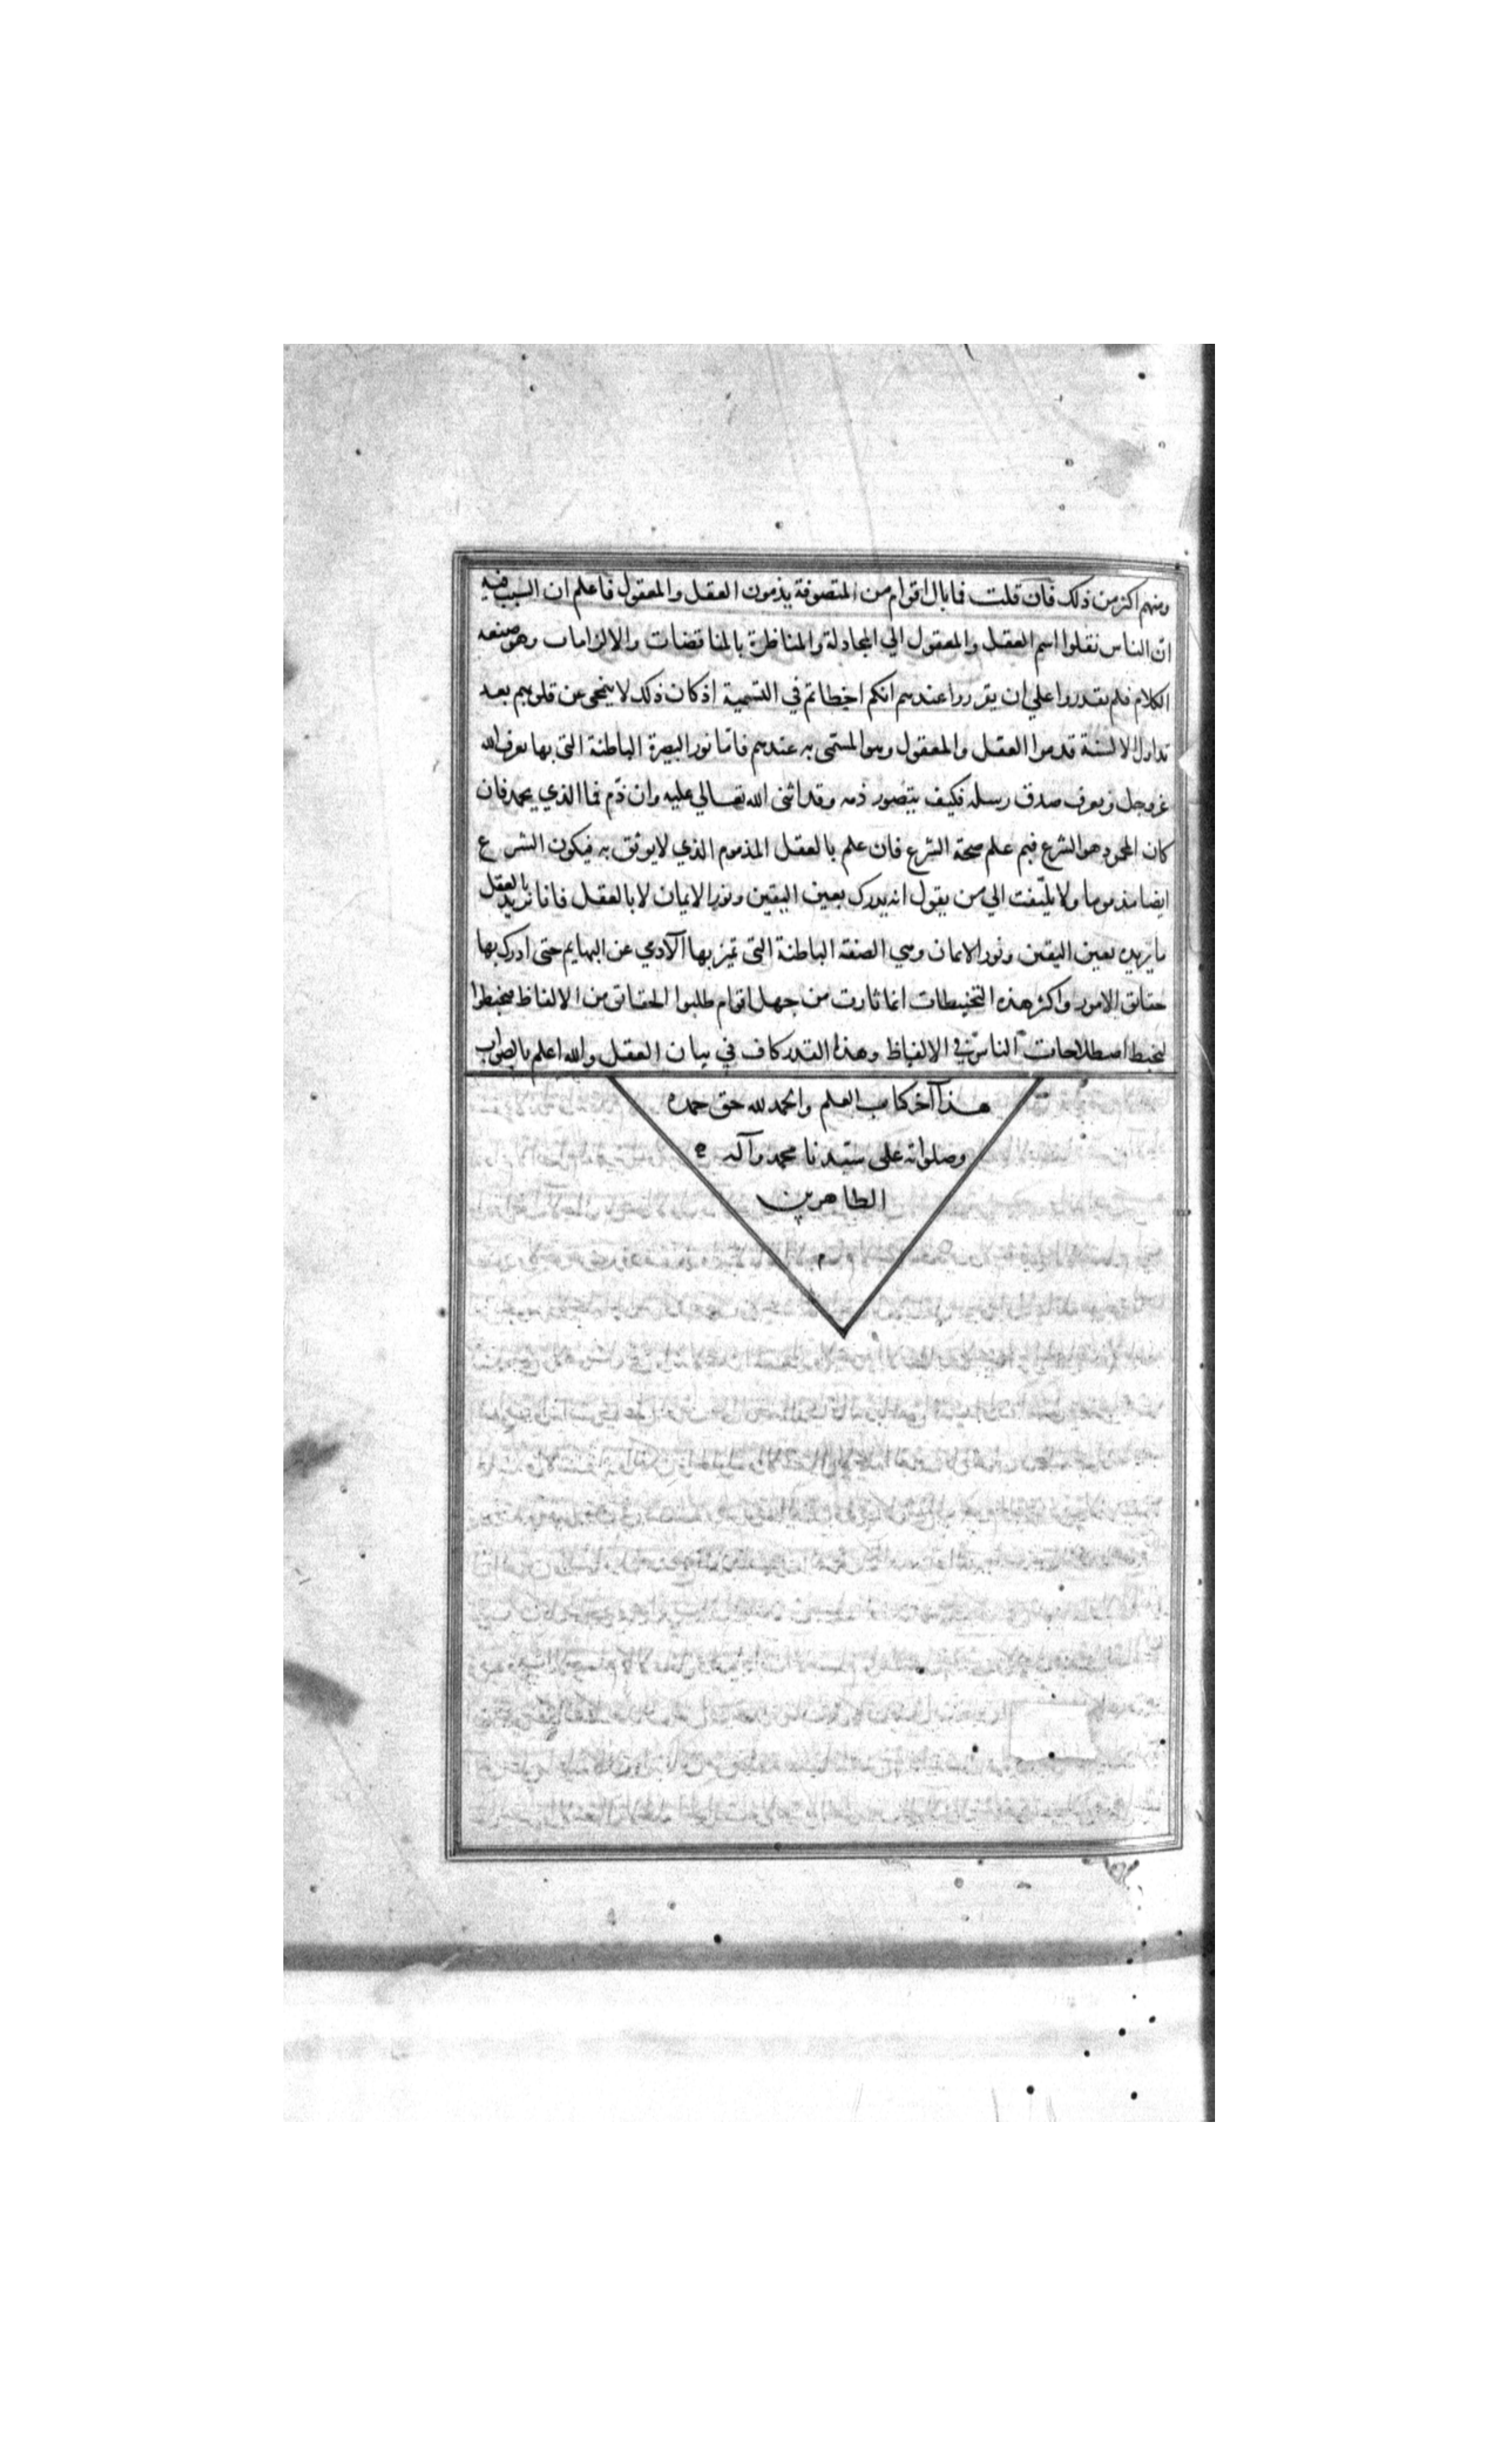 ومنهم اكثر من ذلك فان قلت فما بال اقوام من المتصوفة يذمون العقل والمعقول فاعلم ان السبب فيه
ان الناس نقلوا اسم العقل والمعقول الي المجادلة والمناظرة بالمناقضات والالزامات وهو صنعه
الكلام فلم يقدروا علي ان يقرروا عندهم انكم اخطاتم في التسمية اذ كان ذلك لا ينمحى عن قلوبهم بعد
تداول الالسنة قدموا العقل والمعقول وهو المسمى به عندهم فاما نور البصيرة الباطنة التى بها يعرف الله
عز وجل ويعرف صدق رسله فكيف يتصور ذمه وقد اثنى الله تعالي عليه وان ذم فما الذي يحمد فان
كان المحمود هو الشرع فبم علم صحة الشرع فان علم بالعقل المذموم الذي لا يوثق به فيكون الشرع
ايضا مذموما ولا يلتفت الي من يقول انه يدرك بعين اليقين ونور الايمان لا بالعقل فانا نريد بالعقل
ما يريده بعين اليقين ونور الايمان وهي الصفة الباطنة التى تميز بها الآدمي عن البهايم حتى ادرك بها
حقايق الامور واكثر هذه التخبيطات انما ثارت من جهل اقوام طلبوا الحقايق من الالفاظ فتخبطوا
لتخبط اصطلاحات الناس في الالفاظ وهذا القدر كاف في بيان العقل والله اعلم بالصواب
هذا آخر كتاب العلم والحمد لله حق حمده
وصلواته على سيدنا محمد وآله
الطاهرين